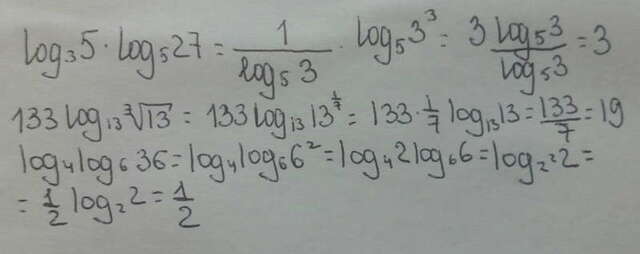 log₃5 · log₅27 = 1/log₅3 · log₅3³ = 3 log₅3/log₅3 = 3
133 log₁₃ ⁷√13 = 133 log₁₃ 13^(1/7) = 133 · 1/7 log₁₃13 = 133/7 = 19
log₄ log₆ 36 = log₄ log₆ 6² = log₄ 2 log₆ 6 = log₂² 2 =
= 1/2 log₂ 2 = 1/2